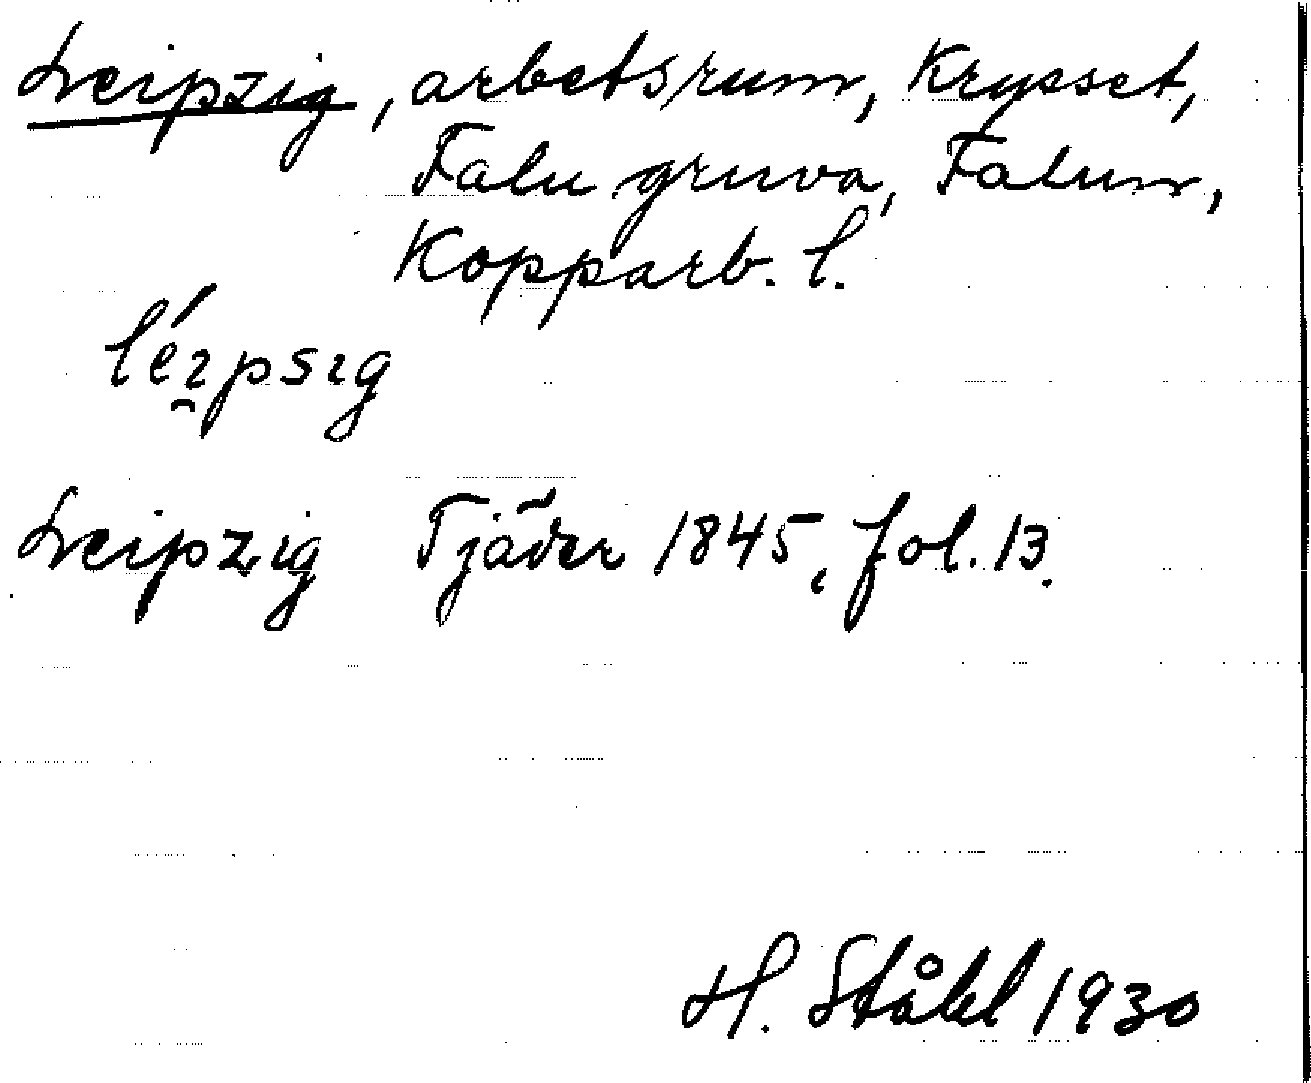 Leipzig, arbetsrum, Krysset,
Falu gruva, Falun,
Kopparb. l.
léı̯psıg
Leipzig Tjäder 1845, fol. 13.
H. Ståhl 1930